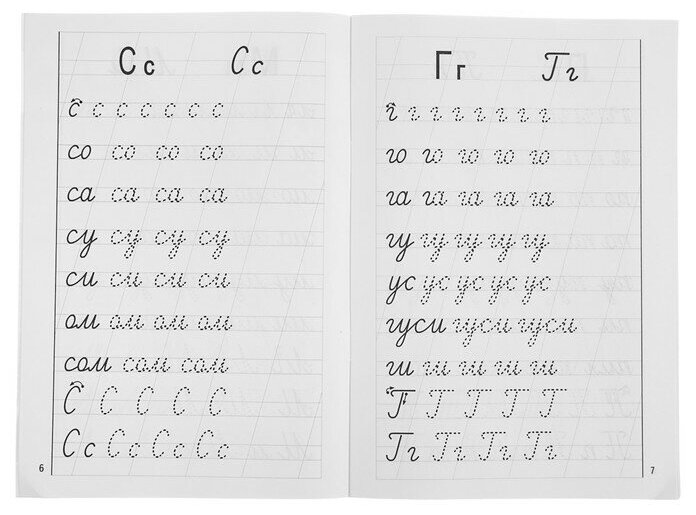 Сс Сс
с с с с с с с
со со со со
са са са са
су су су су
си си си си
ом ом ом ом
сом сом сом
С С С С С
Сс Сс Сс Сс
6
Гг Гг
г г г г г г г г
го го го го го
га га га га га
гу гу гу гу гу
ус ус ус ус ус
гуси гуси гуси
ги ги ги ги ги
Г Г Г Г Г
Гг Гг Гг Гг
7